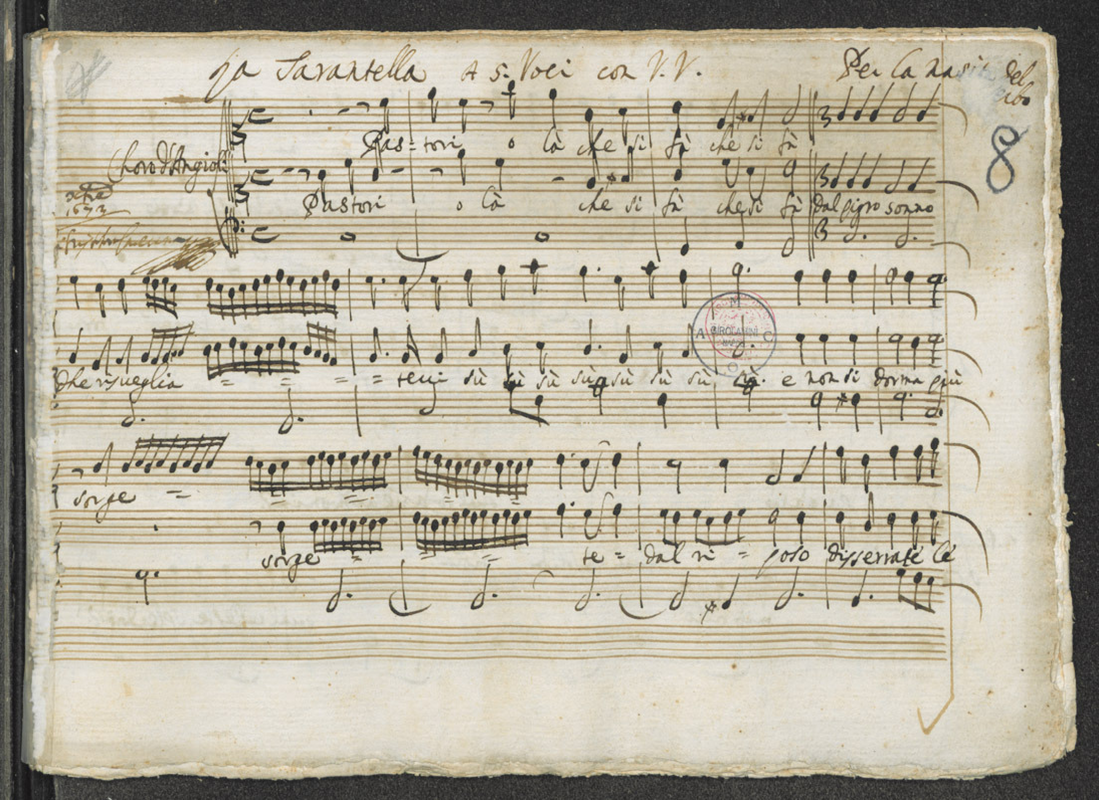 La Tarantella A 5. Voci con V.V. Per la nascita del
8
Pas = tori o là che si fà che si fà
Choro d'Angioli
Pastori o là che si fà che si fà dal pigro sonno
1673
Che risueglia = = = = teui sù sù sù sù sù sù sù e non si dorma più
sorge = = =
sorge = = = te = dal ri = poso disserrate le